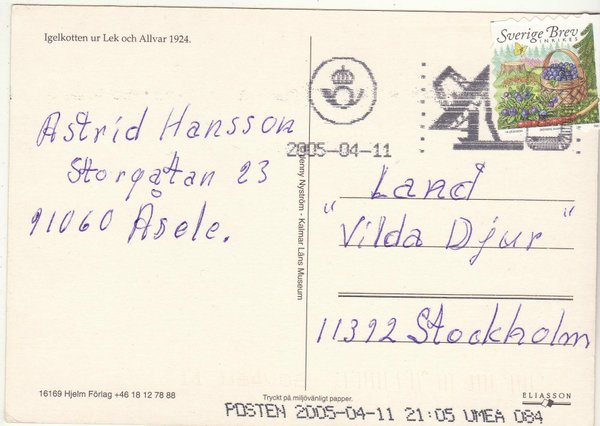 Igelkotten ur Lek och Allvar 1924.
Sverige Brev
INRIKES
2005-04-11
Astrid Hansson
Storgatan 23
91060 Åsele.
Land
"Vilda Djur"
11392 Stockholm
Jenny Nyström - Kalmar Läns Museum
16169 Hjelm Förlag +46 18 12 78 88
Tryckt på miljövänligt papper.
ELIASSON
POSTEN 2005-04-11 21:05 UMEA 084